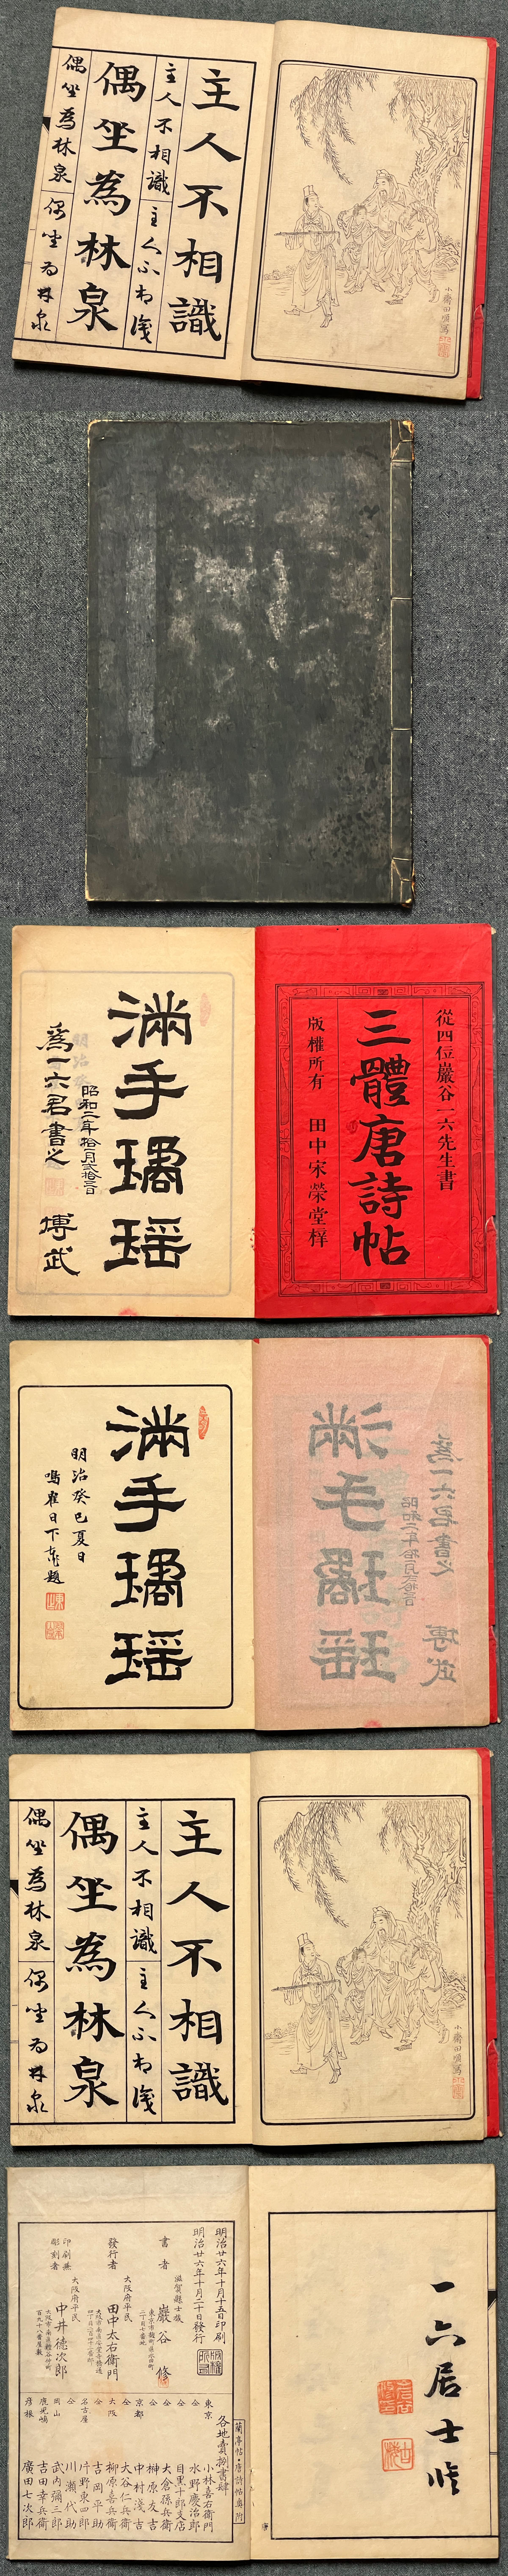 主人不相識
主人不相識
主人不相識
偶坐為林泉
偶坐為林泉
偶坐為林泉
小齋田順寫
從四位巖谷一六先生書
三體唐詩帖
版權所有
田中宋榮堂梓
滿手璚瑶
昭和二年拾一月弐拾三日
為一六君書之
博武
滿手璚瑶
明治癸巳夏日
鳴雀日下東作題
主人不相識
主人不相識
主人不相識
偶坐為林泉
偶坐為林泉
偶坐為林泉
小齋田順寫
一六居士修
明治廿六年十月十五日印刷
明治廿六年十月二十日發行
滋賀縣士族
書者
巖谷修
大阪府平民
發行者
田中太右衛門
大阪府平民
印刷兼
彫刻者
中井德次郎
蘭亭帖・唐詩帖專附
各地賣捌書肆
東京
小林喜右衛門
仝
水野慶治郎
仝
目黑十郎支店
仝
大倉孫兵衛
仝
榊原友吉
京都
中村淺吉
仝
大谷仁兵衛
大阪
柳原喜兵衛
仝
吉岡平助
名古屋
片野東四郎
仝
川瀬代助
岡山
武内彌三郎
鹿児嶋
吉田幸兵衛
彦根
廣田七次郎